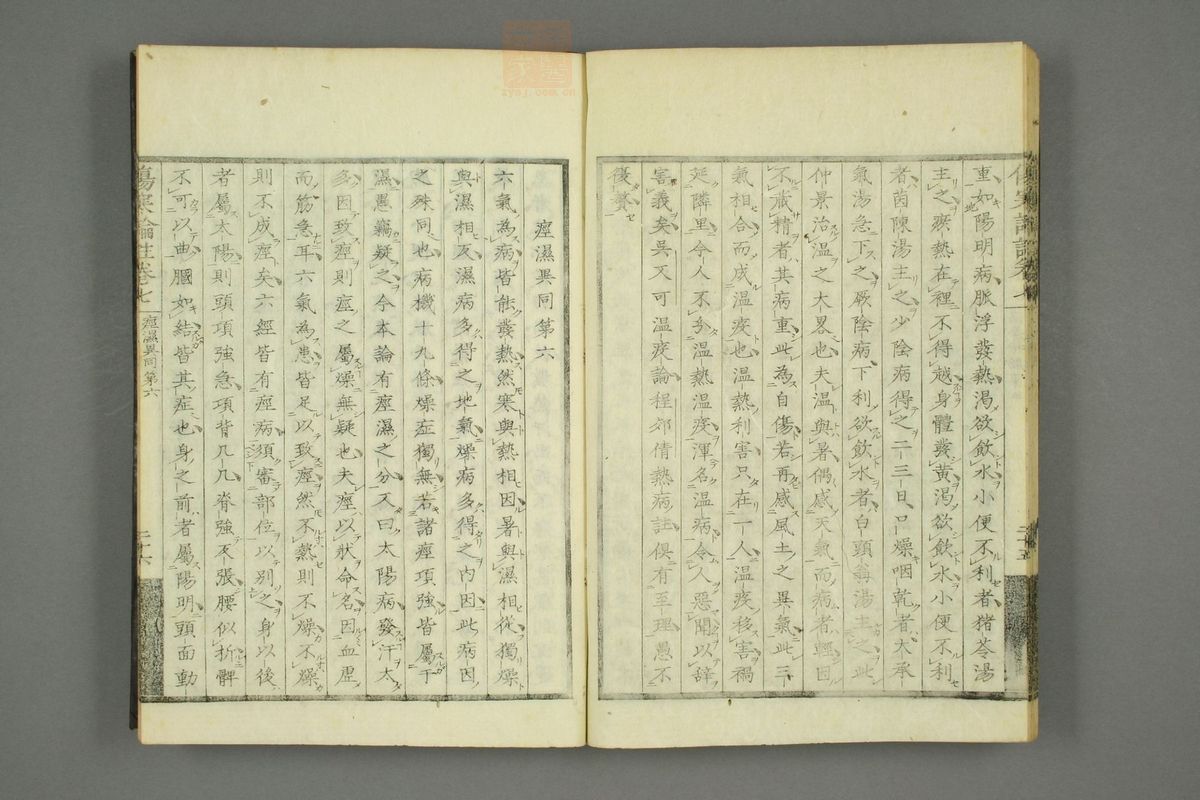 重如陽明病脈浮發熱渴欲飲水小便不利者猪苓湯
主之瘀熱在裡不得越身體發黃渴欲飲水小便不利
者茵陳湯主之少陰病得之二三日口燥咽乾者大承
氣湯急下之厥陰病下利欲飲水者白頭翁湯主之此
仲景治溫之大畧也夫溫與暑偶感天氣而病者輕因
不戒精者其病重此為自傷若再感風土之異氣此三
氣相合而成溫疫也溫熱利害只在一人溫疫移害禍
延隣里今人不分溫熱溫疫渾名溫病令人惡聞以辞
害義矣吳又可溫疫論程郊倩熱病註俱有至理愚不
復贅
痙濕異同第六
六氣為病皆能發熱然寒與熱相因暑與濕相從獨燥
與濕相反濕病多得之地氣燥病多得之內因此病因
之殊同也病機十九條燥症獨無若諸痙項強皆屬于
濕愚竊疑之今本論有痙濕之分又曰太陽病發汗太
多因致痙則痙之屬燥無疑也夫痙以狀命名因血虛
而筋急耳六氣為患皆足以致痙然不熱則不燥不燥
則不成痙矣六經皆有痙病須審部位以別之身以後
者屬太陽則頭項強急項背几几脊強反張腰似折髀
不可以曲膕如結皆其症也身之前者屬陽明頭面動
傷寒論註卷七
痙濕異同第六
二十六
二十五